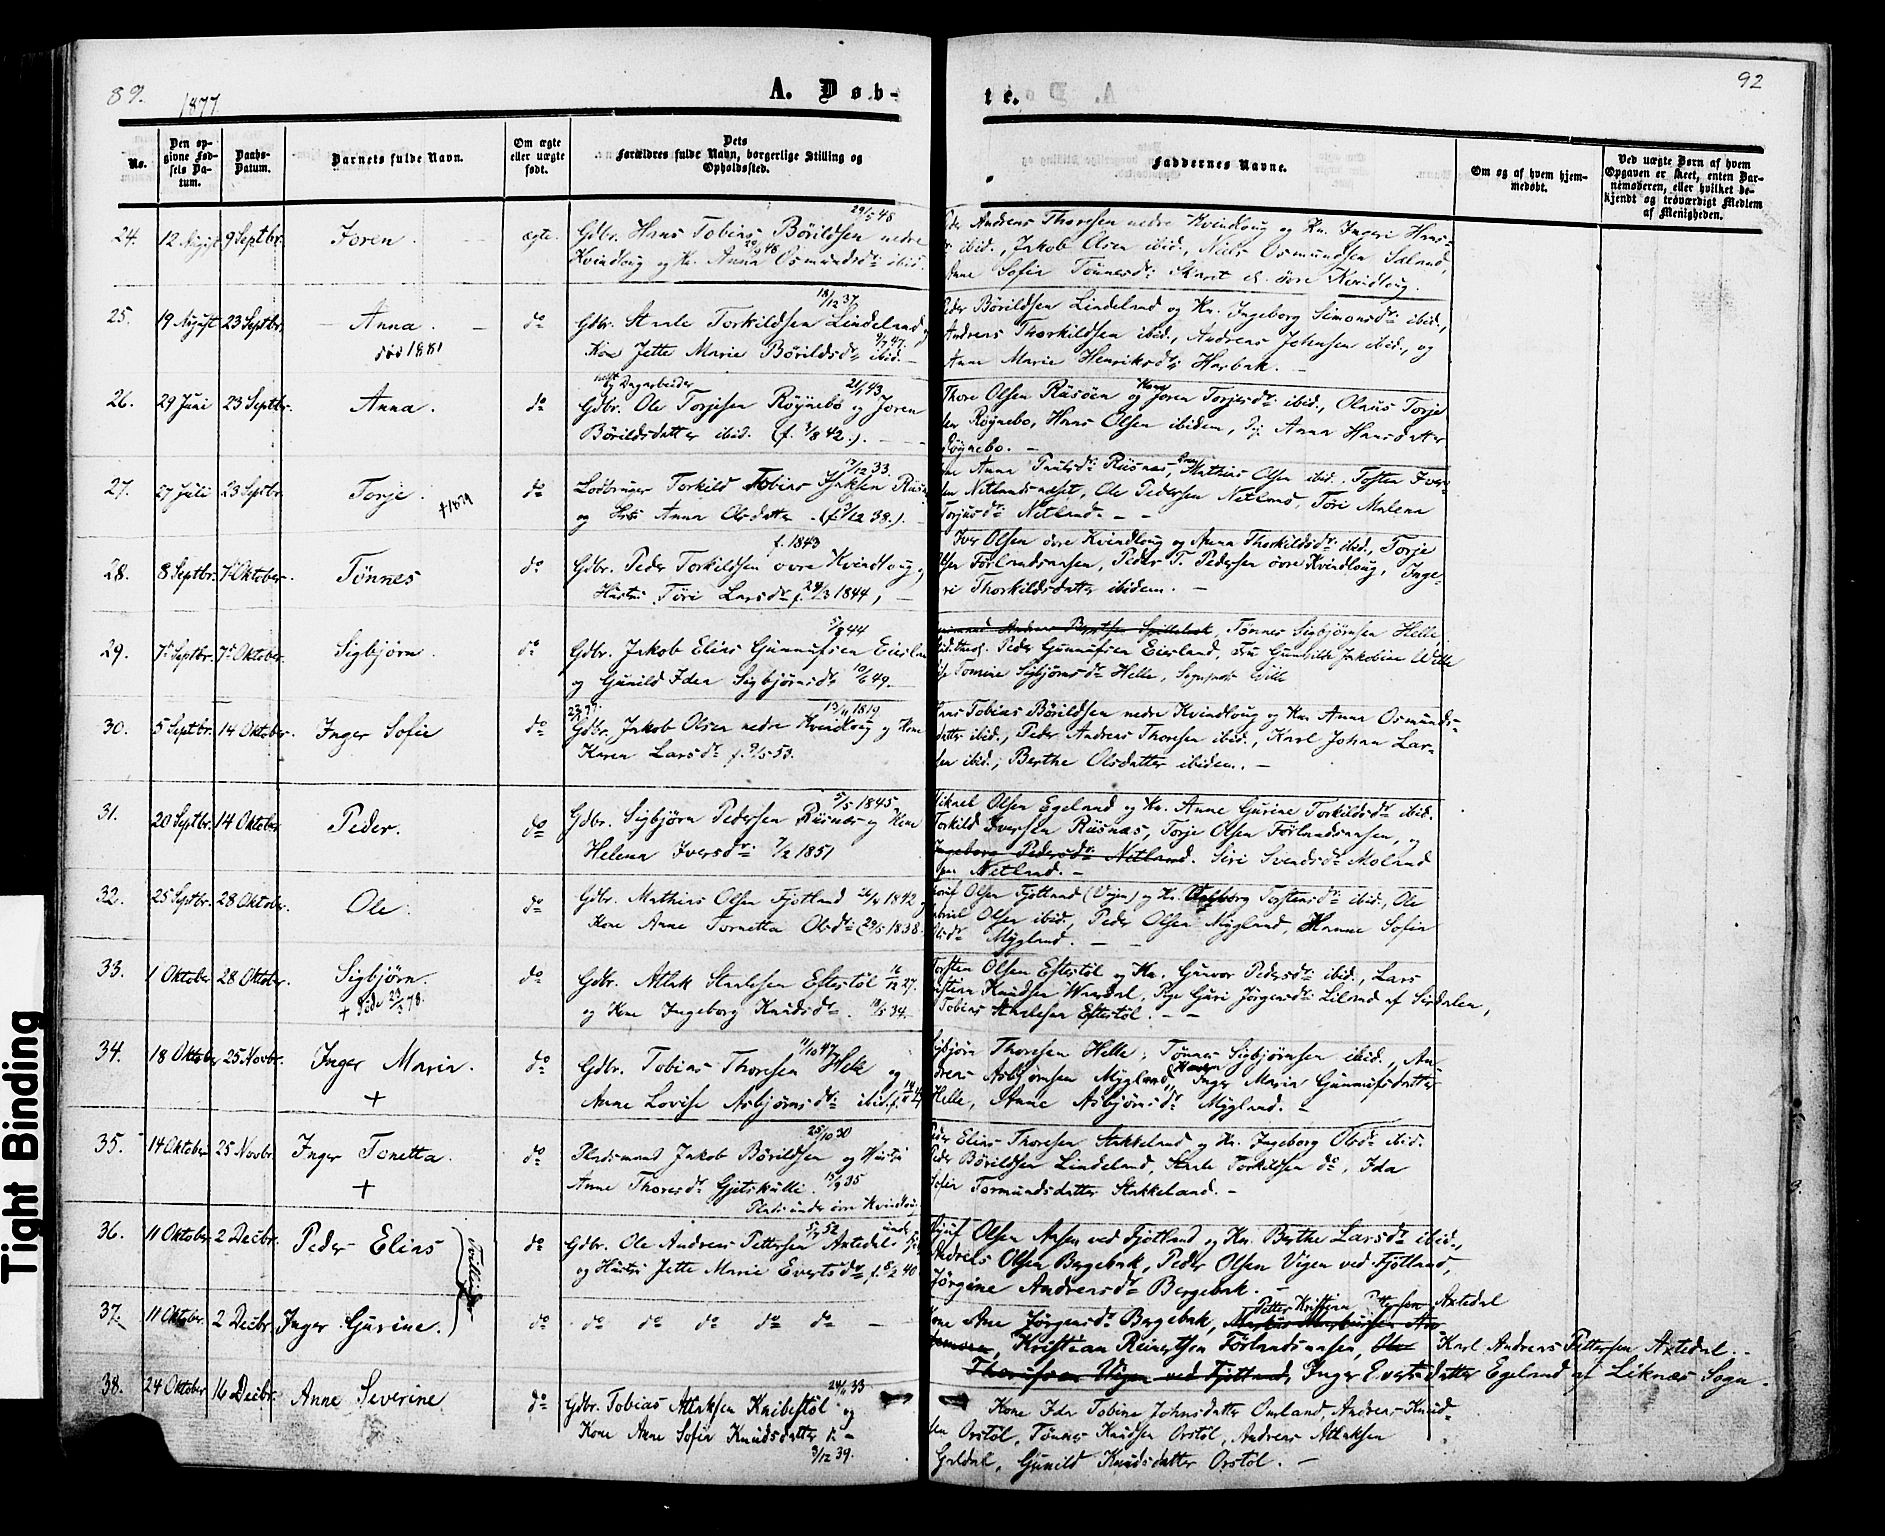 89.
1877
A. Døb-
te.
92
No.
Den op-
givne Fød-
sels Da-
tum.
Daabs-
Datum.
Barnets fulde Navn.
Om ægte
eller uægte
født.
Dets
Forældres fulde Navn, borgerlige Stilling og
Opholdssted.
Faddernes Navne.
Om og af hvem hjem-
medøbt.
Ved uægte Børn af hvem
Opgaven er skeet, enten Bar-
nemoderen, eller hvilket be-
kjendt og troværdigt Medlem
af Menigheden.
24. 12 August 9 Septbr. Joren. ægte. 29/5 48
Gdbr. Hans Tobias Børildsen nedre
Kvindloug og Kr. Anna Osmundsdr. ibid.
Andreas Thoresen nedre Kvindloug og Kn. Ingeri Hans-
ibid., Jakob Olsen ibid., Niels Osmundsen Saland,
Sofie Tønnesdr. Skaret et. övre Kvindloug.
25. 19 August 23 Septbr. Anna. do 18/12 37
død 1881
Gdbr. Staale Torkildsen Lindeland
Kone Jette Marie Børildsdr. ibid.
Peder Børildsen Lindeland og Kn. Ingeborg Simonsdr. ibid.,
Andreas Thorkildsen ibid., Andreas Johnsen ibid., og
Anne Marie Henriksdr. Harbak.
26. 29 Juni 23 Septbr. Anna. do 21/1 43
og Dagarbeider
Gdbr. Ole Torjesen Røynebø og Joren
Børildsdatter ibid. (f. 3/8 42.).
Thore Olsen Risøen og Kone Joren Torjesdr. ibid., Olaus Torje
Røynebø, Hans Olsen ibidem, Pj Anna Hansdatter
Røynebø.
27. 27 Juli 23 Septbr. Torje. do 17/12 33
+1879
Torkild Tobias Isaksen Riis
og Hst Anna Olsdatter (f. 9/12 38.).
Anna Paulsdr. Riisnæs, Mathias Olsen ibid. Tosten Iver-
sen Netlandsnæset, Ole Pedersen Netland, Tøri Malena
Torjusdr. Netland.
28. 8 Septbr. 7de Oktober. Tønnes do f. 1843
Gdbr. Peder Torkildsen övre Kvindloug og
Hustru Tøri Larsdr. f. 24/3 1844,
Iver Olsen övre Kvindloug og Anna Thorkildsdr. ibid., Torje
Olsen Førlandsaasen, Peder T. Pedersen övre Kvindloug, Inge-
ri Thorkildsdatter ibidem.
29. 7de Septbr. 7de Oktober Sigbjørn. do 5/8 44
Gdbr. Jakob Elias Gunnufsen Eiesland
og Gunild Idea Sigbjørnsdr. 10/6 49.
Tønnes Sigbjørnsen Helle,
Peder Gunnufsen Eiesland, Fru Gunhilde Jakobine Wille
Tomine Sigbjørnsdr. Helle,
30. 5 Septbr. 14 Oktober. Inger Sofie do 13/11 1819
Gdbr. Jakob Olsen nedre Kvindloug og Kone
Karen Larsdr. f. 9/5 53.
Hans Tobias Børildsen nedre Kvindloug og Kn. Anna Osmunds-
datter ibid., Peder Andreas Thoresen ibid., Karl Johan Lar-
sen ibid., Berthe Olsdatter ibidem.
31. 20 Septbr. 14 Oktober Peder. do 5/5 1845
Gdbr. Sigbjørn Pedersen Riisnæs og Kone
Helena Iversdr. 7/2 1851
Mikael Olsen Egeland og Kn. Anne Gurine Torkildsdr. ibid.
Torkild Iversen Riisnæs, Torje Olsen Førlandsaasen, og
Ingeborg Pedersdr. Netland. Siri Svendsdr. Moland
Netland.
32. 25 Septbr. 28 Oktober. Ole. do
Gdbr. Mathias Olsen Fjotland 26/10 1842
Kone Anne Tornetta Olsdr. (29/5 1838.
Olsen Fjotland (Vigen) og Kn. Valborg Torstensdr. ibid., Ole
Olsen ibid., Peder Olsen Mygland, Hanne Sofie
Olsdr. Mygland.
33. 1 Oktober 28 Oktober. Sigbjørn. do
+ Døde 23/3 78.
Gdbr. Atlak Staalesen Eftestøl 16/12 27.
og Kone Ingeborg Knudsdr. 18/5 34.
Torsten Olsen Eftestøl og Kn. Gunvor Pedersdr. ibid., Lars
Kristian Knudsen Waardal, Pige Guri Jörgensdr. Liland af Sirdalen,
Tobias Staalesen Eftestøl.
34. 18 Oktober 25 Novbr. Inger Maria. do 11/10 47
+
Gdbr. Tobias Thoresen Helle og
Anne Lovise Asbjørnsdr. ibid. f.
Sigbjørn Thoresen Helle, Tønnes Sigbjørnsen ibid., An-
dreas Asbjørnsen Mygland, Inger Maria Gunnufsdatter
Helle, Anne Asbjørnsdr. Mygland.
35. 14 Oktober 25 Novbr. Inger Tonetta. do 25/10 30
+
Pladsmand Jakob Børildsen og Hustru
Anne Thoresdr. Gjetskulli. 15/9 35
Plads under övre Kvindloug
Peder Elias Thoresen Stakkeland og Kn. Ingeborg Olsdr. ibid.
Peder Børildsen Lindeland, Staale Torkildsen do, Ida
Sofie Tormundsdatter Stakkeland.
36. 11 Oktober 2 Decbr. Peder Elias do 5/7 52 under
Tvillinger
Gdbr. Ole Andreas Pettersen Axtedal
og Hustru Jette Marie Evertsdr. f. 5/2 40
Olsen Aasen ved Fjotland og Kn. Berthe Larsdr. ibid.,
Andreas Olsen Bergebak, Peder Olsen Vigen ved Fjotland,
Jørgine Andreasdr. Bergebak.
37. 11 Oktober. 2 Decbr. Inger Gurine. do do do do do do
Petter Kristian Pettersen Axtedal
Kone Ane Jørgensdr. Bergebak,
Kristian Reinertsen Førlandsaasen, Karl Andreas Pettersen Axtedal.
Vigen ved Fjotland, Inger Evertsdatter Egeland af Liknæs Sogn.
38. 24 Oktober 16 Decbr. Anne Severine do 24/11 33
Gdbr. Tobias Atlaksen Knibestøl og
Kone Anne Sofie Knudsdatter
3/12 39.
Kone Ida Tobine Johnsdatter Omland, Andreas Knud-
sen Orstøl, Tønnes Knudsen Orstøl, Andreas Atlaksen
Galdal, Gunild Knudsdatter Orstøl.
Tight Binding